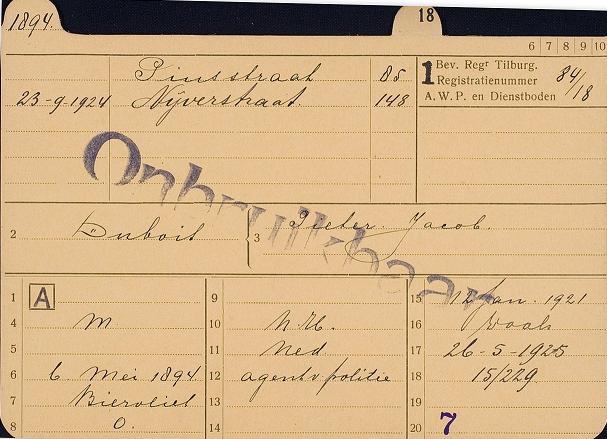 1894.
18
6 7 8 9 10
Piusstraat 85
23-9-1924 Nijverstraat 148
1 Bev. Regr Tilburg.
Registratienummer 84/18
A. W. P. en Dienstboden
Onbruikbaar
2 Dubois 3 Pieter Jacob.
1 A 9 15 12 Jan. 1921
4 M 10 N.H. 16
5 11 Ned. 17 26-5-1925
6 6 Mei 1894 12 agent v politie 18 15/229
7 Biervliet 13 19
8 O. 14 20 7